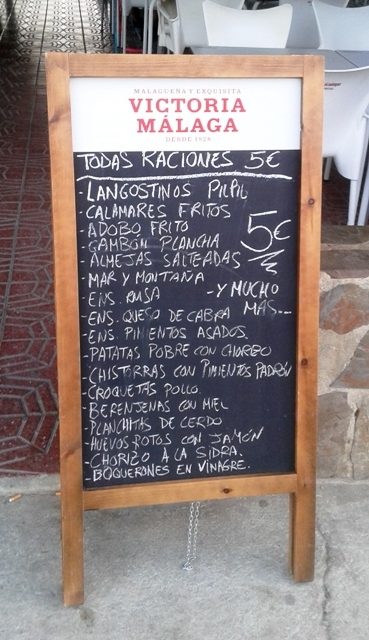 MALAGUEÑA Y EXQUISITA
VICTORIA
MÁLAGA
DESDE 1928
TODAS RACIONES 5€
- LANGOSTINOS PILPIL
- CALAMARES FRITOS
- ADOBO FRITO
- GAMBÓN PLANCHA
- ALMEJAS SALTEADAS
5€
- MAR Y MONTAÑA
- ENS. RUSA
- Y MUCHO
MÁS...
- ENS. QUESO DE CABRA
- ENS. PIMIENTOS ASADOS.
- PATATAS POBRE CON CHORIZO
- CHISTORRAS CON PIMIENTOS PADRÓN
- CROQUETAS POLLO.
- BERENJENAS CON MIEL
- PLANCHITAS DE CERDO
- HUEVOS ROTOS CON JAMÓN
- CHORIZO A LA SIDRA.
- BOQUERONES EN VINAGRE.